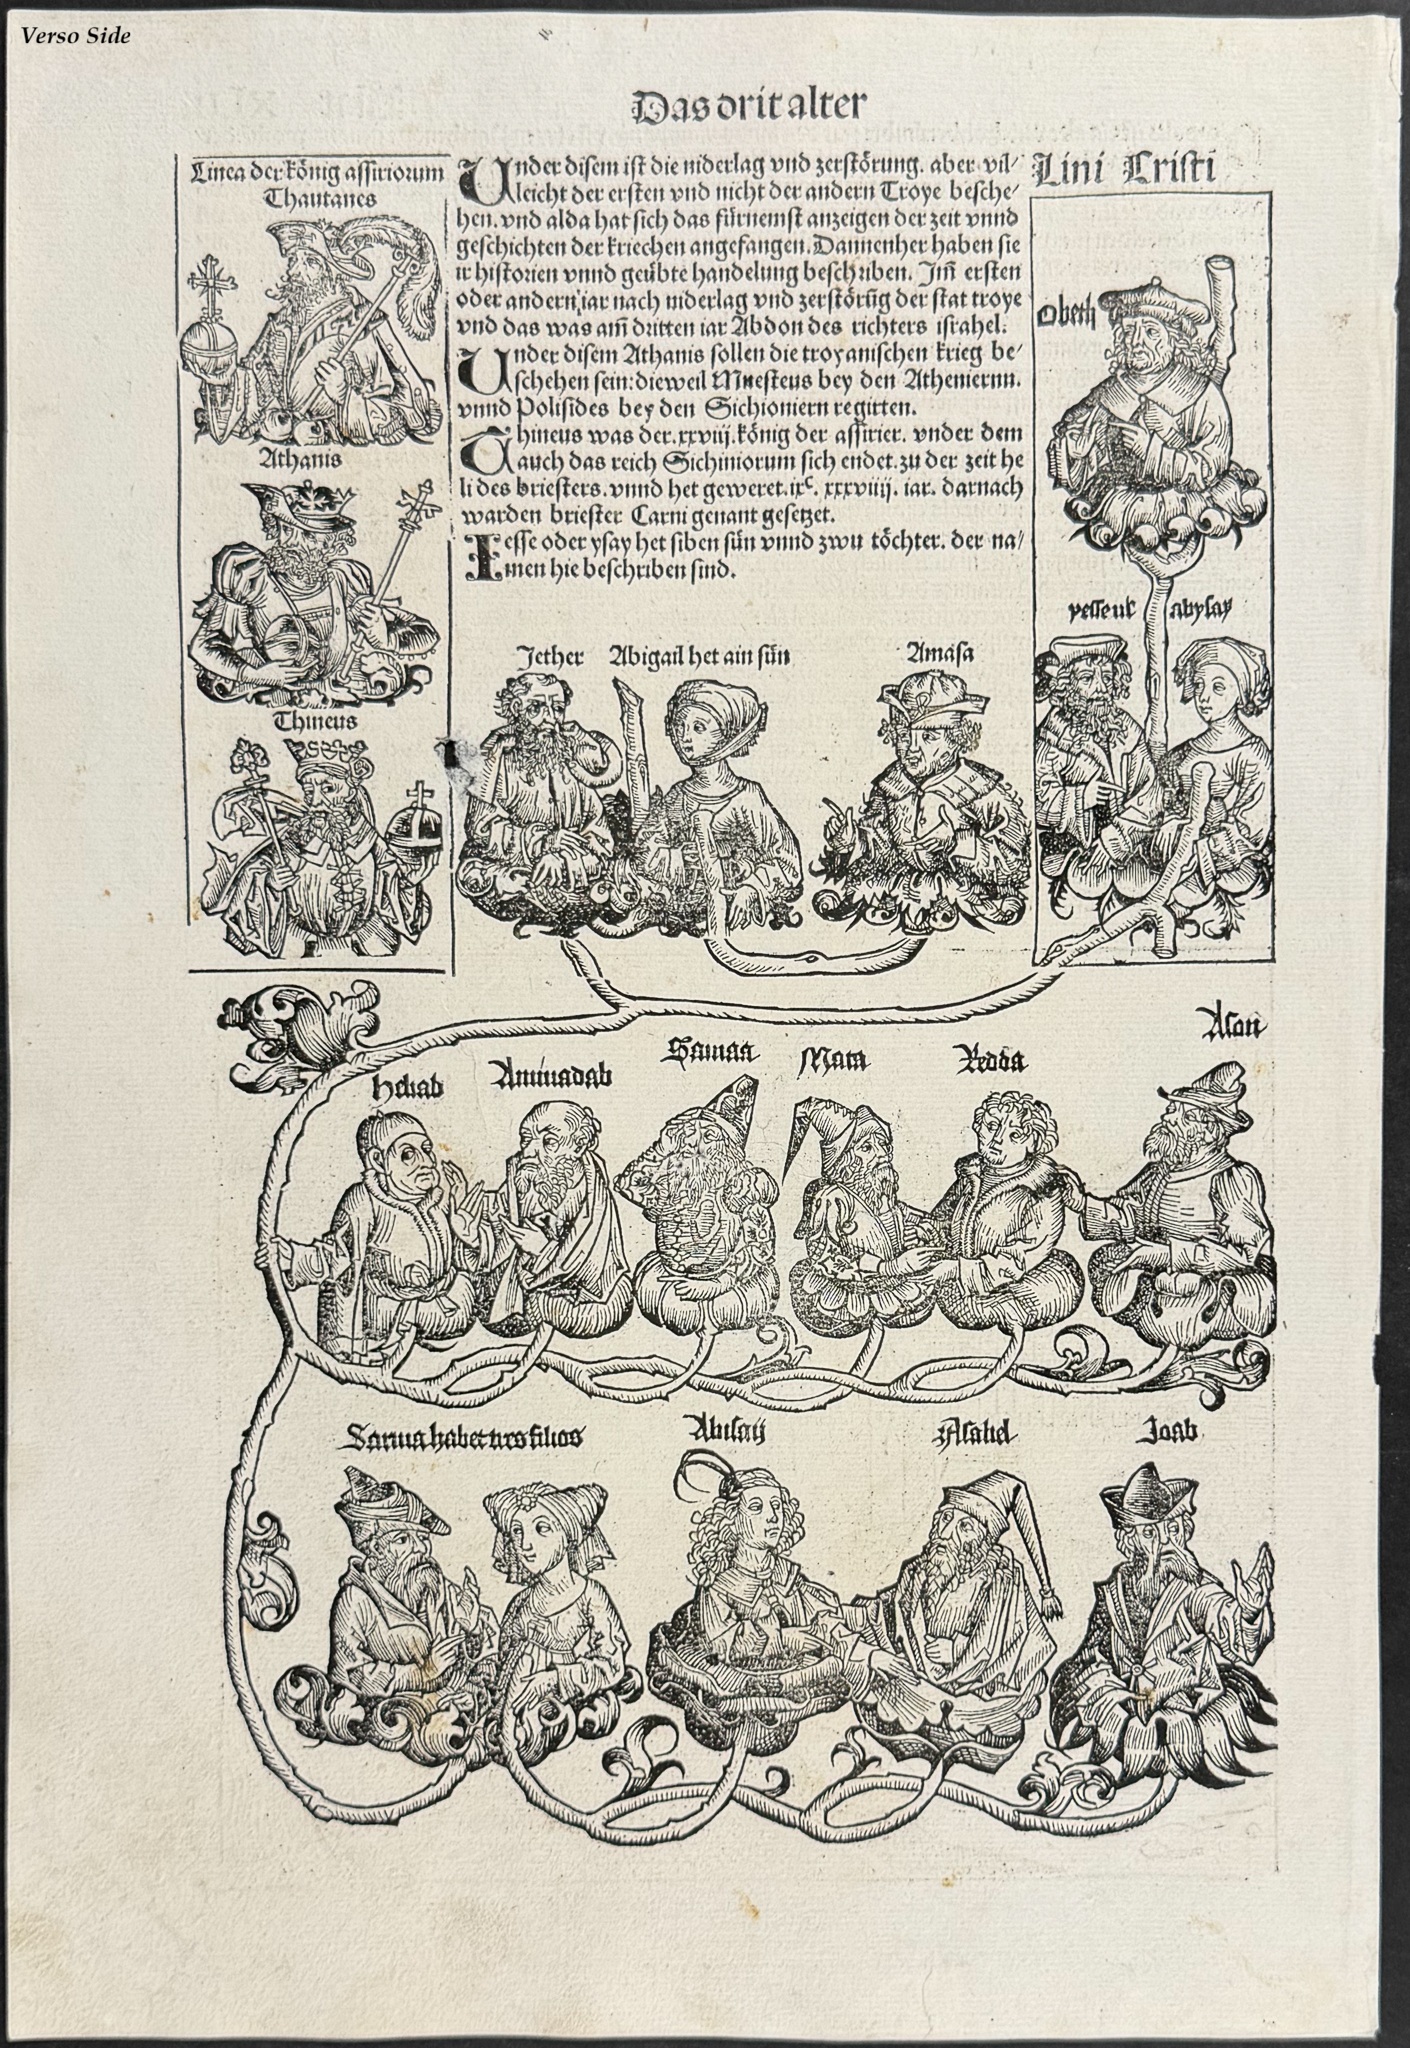 Verso Side
Das drit alter
Linea der könig assiriorum
Thautanes
Athanis
Thineus
Under disem ist die niderlag vnd zerstörung. aber vil⸗
leicht der ersten vnd nicht der andern Troye besche⸗
hen. vnd alda hat sich das fürnemst anzeigen der zeit vnnd
geschichten der kriechen angefangen. Dannenher haben sie
ir historien vnnd geübte handelung beschriben. Jm̄ ersten
oder andern iar nach niderlag vnd zerstörūg der stat troye
vnd das was am̄ dritten iar Abdon des richters israhel.
Under disem Athanis sollen die troyanischen krieg be⸗
schehen sein: dieweil Mnesteus bey den Atheniernn.
vnnd Polisides bey den Sichioniern regirten.
Thineus was der .xxviij. könig der assirier. vnder dem
auch das reich Sichiniorum sich endet. zu der zeit he
li des briesters. vnnd het geweret .ixᶜ. xxxviiij. iar. darnach
warden briester Carni genant gesetzet.
Jesse oder ysay het siben sün vnnd zwu töchter. der na⸗
men hie beschriben sind.
Lini Cristi
Obeth
yesse vel abysay
Jether Abigail het ain sün Amasa
Heliab Aminadab Samaa Mata Redda Asan
Saruia habet tres filios Abisaij Asahel Joab